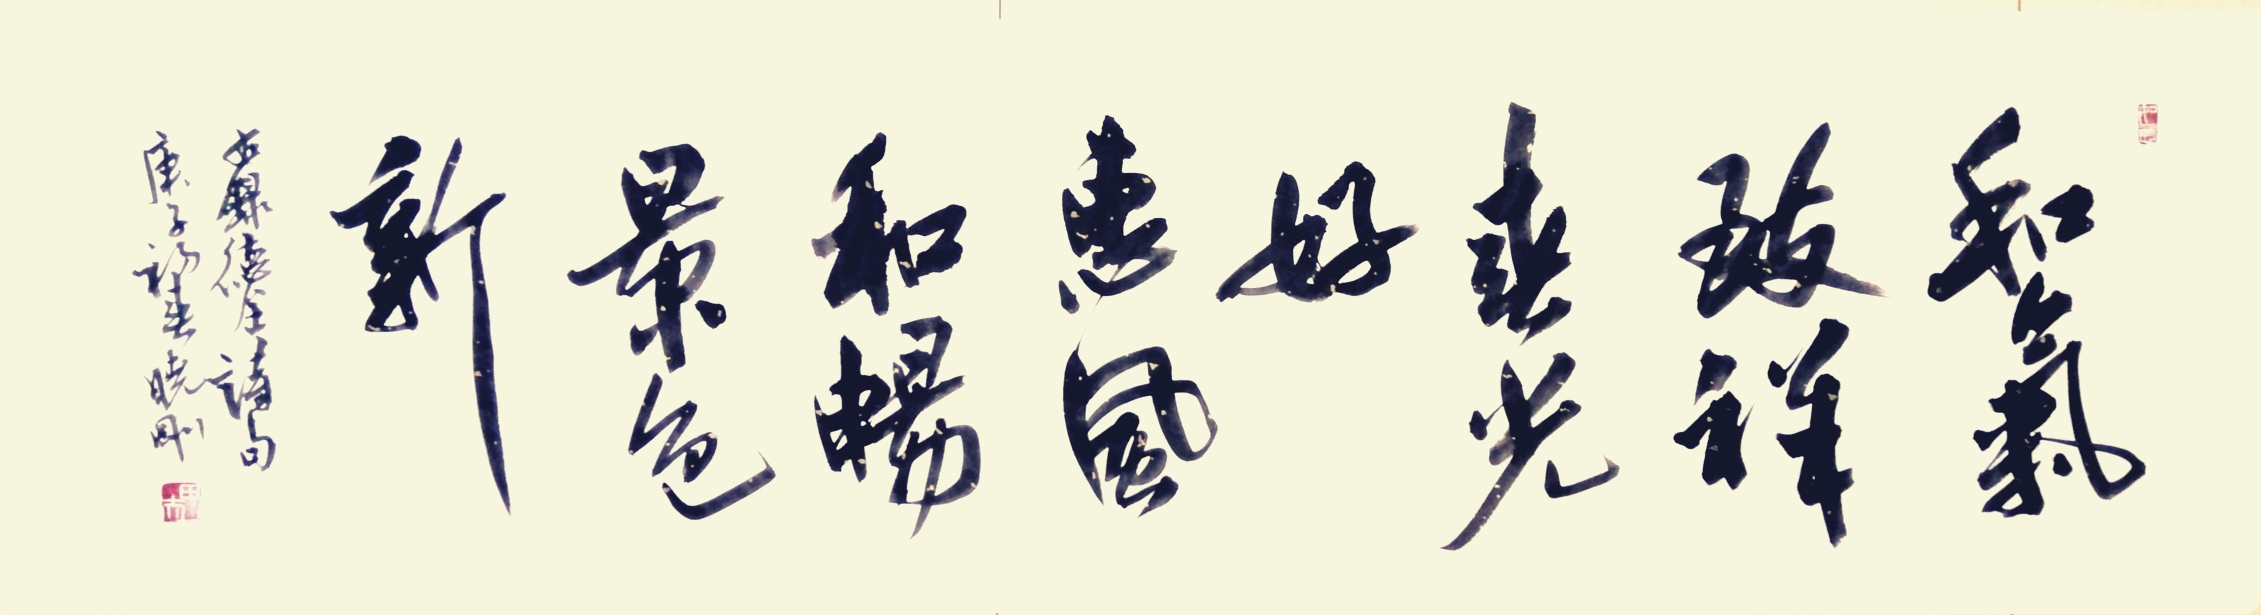 和氣
致祥
春光
好
惠風
和暢
景色
新
右録德全詩句
庚子初春曉剛